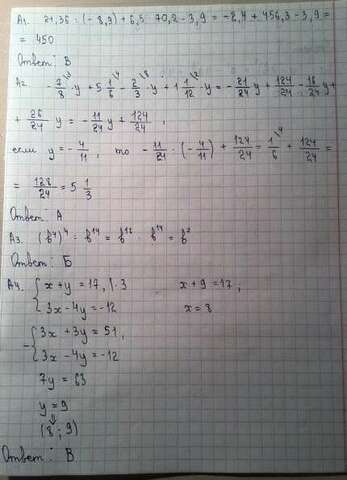 А1. 21,36 : (-8,9) + 6,5 · 70,2 - 3,9 = -2,4 + 456,3 - 3,9 =
= 450
Ответ: В
А2 -7/8 · y + 5 1/6 - 2/3 · y + 1 1/12 · y = -21/24 y + 124/24 - 16/24 y +
+ 26/24 y = -11/24 y + 124/24 ;
если y = -4/11, то -11/24 · (-4/11) + 124/24 = 1/6 + 124/24 =
= 128/24 = 5 1/3
Ответ: А
А3.
Ответ: Б
А4. { x + y = 17, | · 3 x + 9 = 17;
3x - 4y = -12 x = 8
- { 3x + 3y = 51,
3x - 4y = -12
7y = 63
y = 9
⇓
(8 ; 9)
Ответ: В